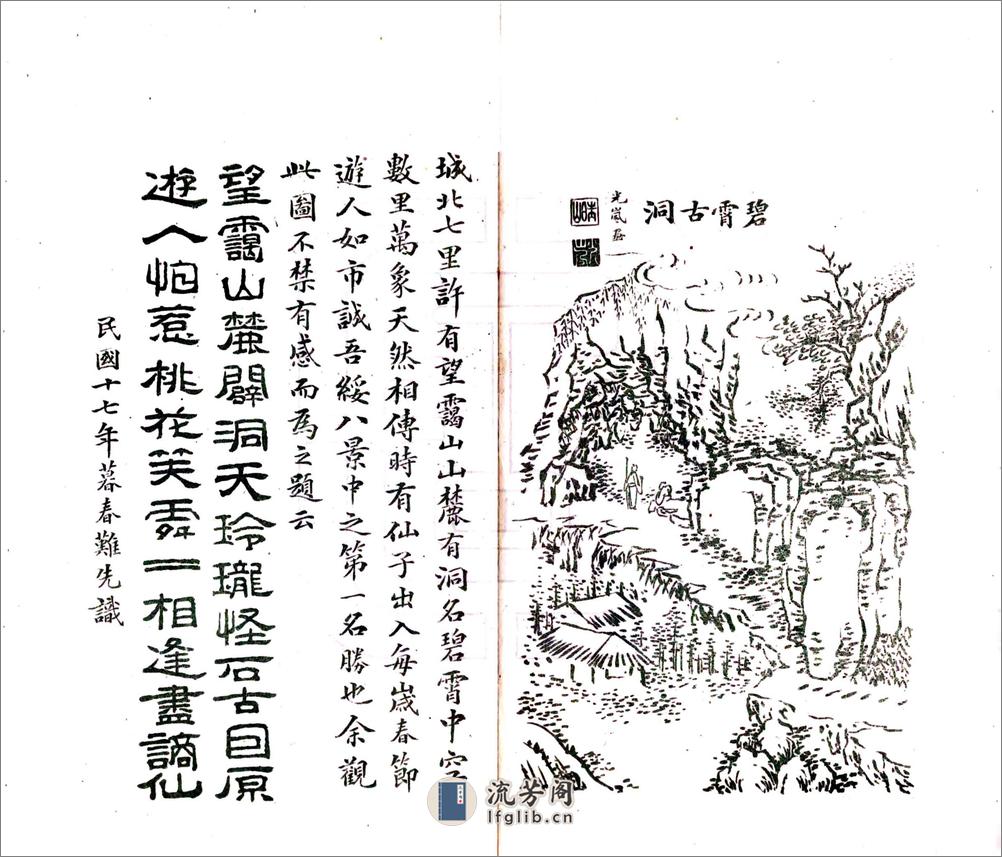 碧霄古洞
光嵐
城北七里許有望靄山山麓有洞名碧霄中空
數里萬象天然相傳時有仙子出入每歲春節
遊人如市誠吾綏八景中之第一名勝也余觀
此圖不禁有感而爲之題云
望靄山麓闢洞天玲瓏怪石古
遊人怕惹桃花笑一相逢盡謫仙
民國十七年暮春難先識
流芳阁
lfglib.cn